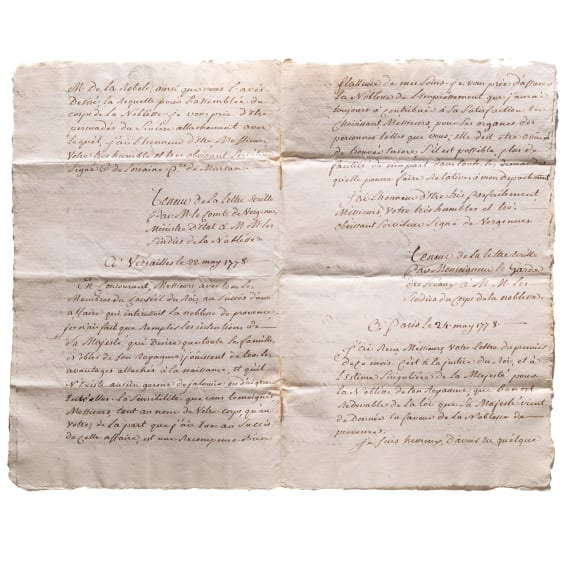 M. de la Nobele, ainsi que vous l'avés
Desiré, la Requette pour l'assemblée du
corps de la Noblesse, je vous prie d'être
persuadés du sincere attachement avec
lequel j'ai l'honneur d'être Messieurs,
Votre tres humble et tres obeissant serviteur
Signé de Loraine P. de Marsan
Teneur de la lettre ecritte
Par M. le Comte de Vergennes
Ministre d'Etat à M. M. les
Sindics de la Noblesse
A Versailles le 24 may 1778
En Concourant, Messieurs avec tous les
Membres du Conseil du Roi, au succès d'une
affaire qui interessoit la noblesse de provence,
je n'ai fait que Remplir les intentions de
Sa Majesté, qui Desire que toutes les familles
Nobles de son Royaume jouissent de tous les
avantages attachés à la naissance, et qu'il
N'existe aucun germe de jalousie, ou d'aigreur
Entr'elles. La sensibilité que vous temoignés
Messieurs, tant au nom de Votre corps qu'au
Votre, de la part que j'ai Eue au succès
de Cette affaire, est une Recompense Bien
flatteuse de mes soins. je vous prie d'assurer
La Noblesse de l'empressement que j'aurai
toujours à contribuer à sa satisfaction en
Choisissant Messieurs, pour ses organes des
personnes telles que vous, elle doit être
de trouver s'il est possible, plus de
facilité de ma part dans toutes les demandes
qu'elle pourra faire Relatives à mon Departement
j'ai L'honneur d'être très parfaitement
Messieurs, Votre très humble et très
obeissant serviteur Signé de Vergennes
Teneur de la lettre ecritte
Par Monseigneur le Garde
des sceaux à M. M. les
Sindics du Corps de la noblesse.
A Paris le 24 may 1778.
J'ai Reçu Messieurs votre Lettre du premier
de ce mois. C'est à la justice du Roi, et à
l'Estime Singuliere de Sa Majesté pour
la Noblesse de son Royaume, que l'on est
Redevable de la loi que Sa Majesté vient
de Donner en faveur de la Noblesse de
provence.
Je suis heureux, d'avoir eu quelque